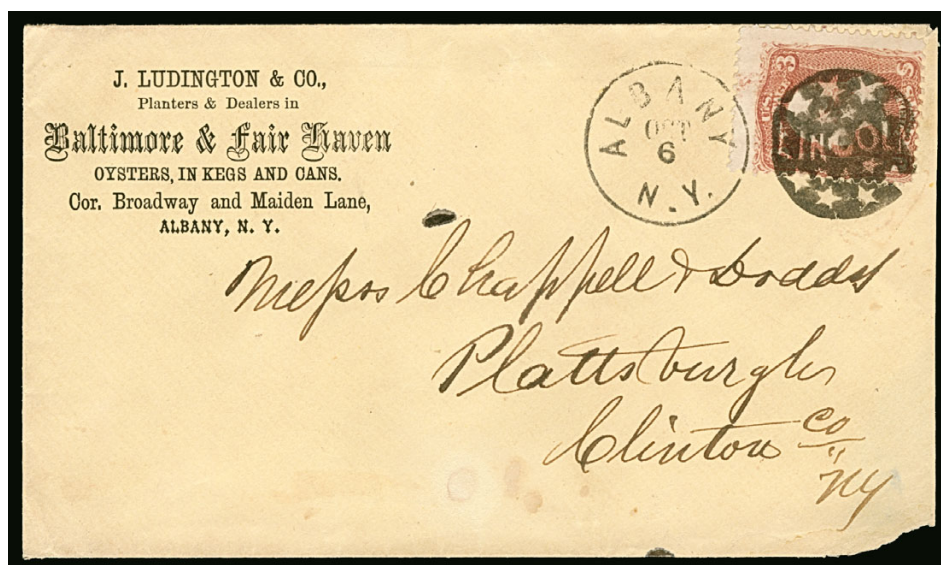 J. LUDINGTON & CO.,
Planters & Dealers in
Baltimore & Fair Haven
OYSTERS, IN KEGS AND CANS.
Cor. Broadway and Maiden Lane,
ALBANY, N. Y.
ALBANY
OCT
6
N.Y.
3
LINCOL
Messrs Chappell & Dodds
Plattsburgh
Clinton Co
NY